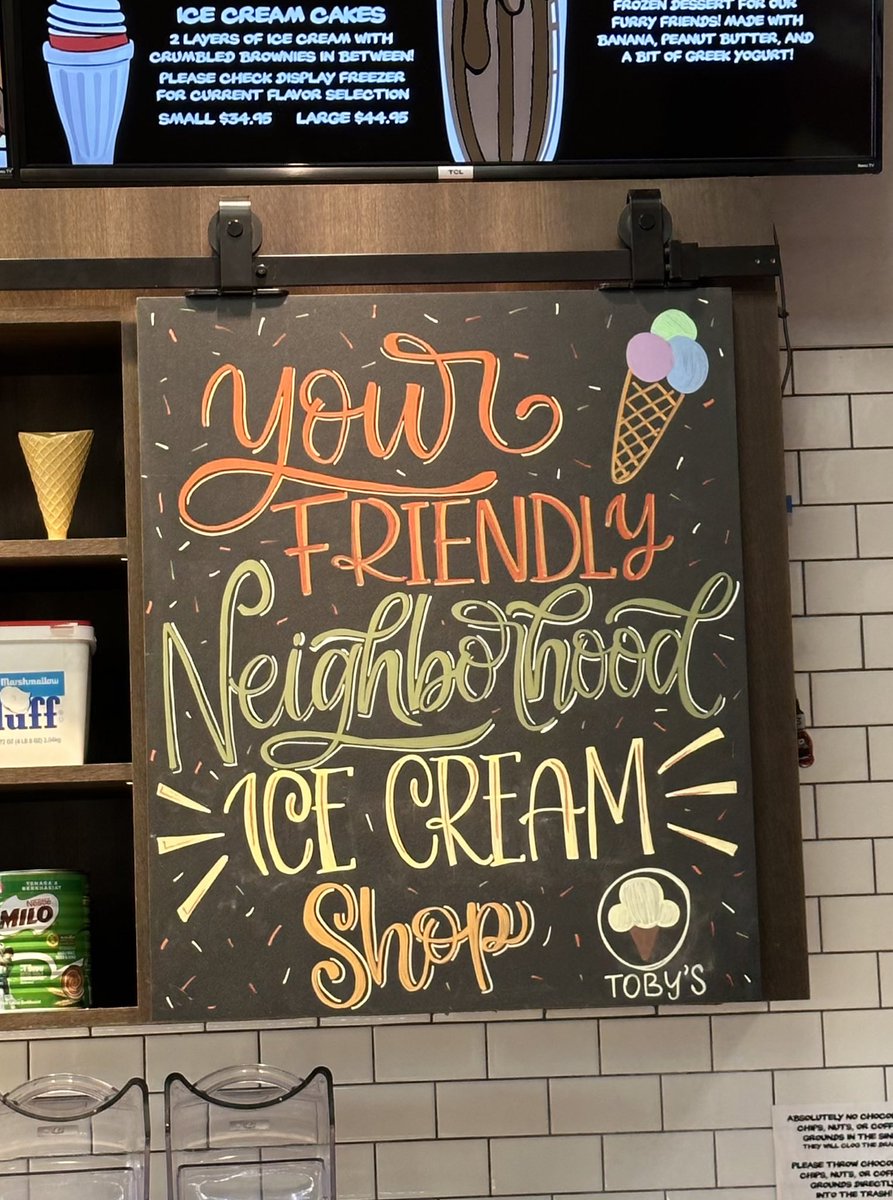 ICE CREAM CAKES
2 LAYERS OF ICE CREAM WITH
CRUMBLED BROWNIES IN BETWEEN!
PLEASE CHECK DISPLAY FREEZER
FOR CURRENT FLAVOR SELECTION
SMALL $34.95 LARGE $44.95
FROZEN DESSERT FOR OUR
FURRY FRIENDS! MADE WITH
BANANA, PEANUT BUTTER, AND
A BIT OF GREEK YOGURT!
TCL
Roku TV
your
FRIENDLY
Neighborhood
ICE CREAM
Shop
TOBY'S
Marshmallow
luff
Nestle
MILO
ABSOLUTELY NO
CHIPS, NUTS, OR
GROUNDS IN THE
THEY WILL CLOG THE
PLEASE THROW
CHIPS, NUTS, OR
GROUNDS DIRECTLY
INTO THE